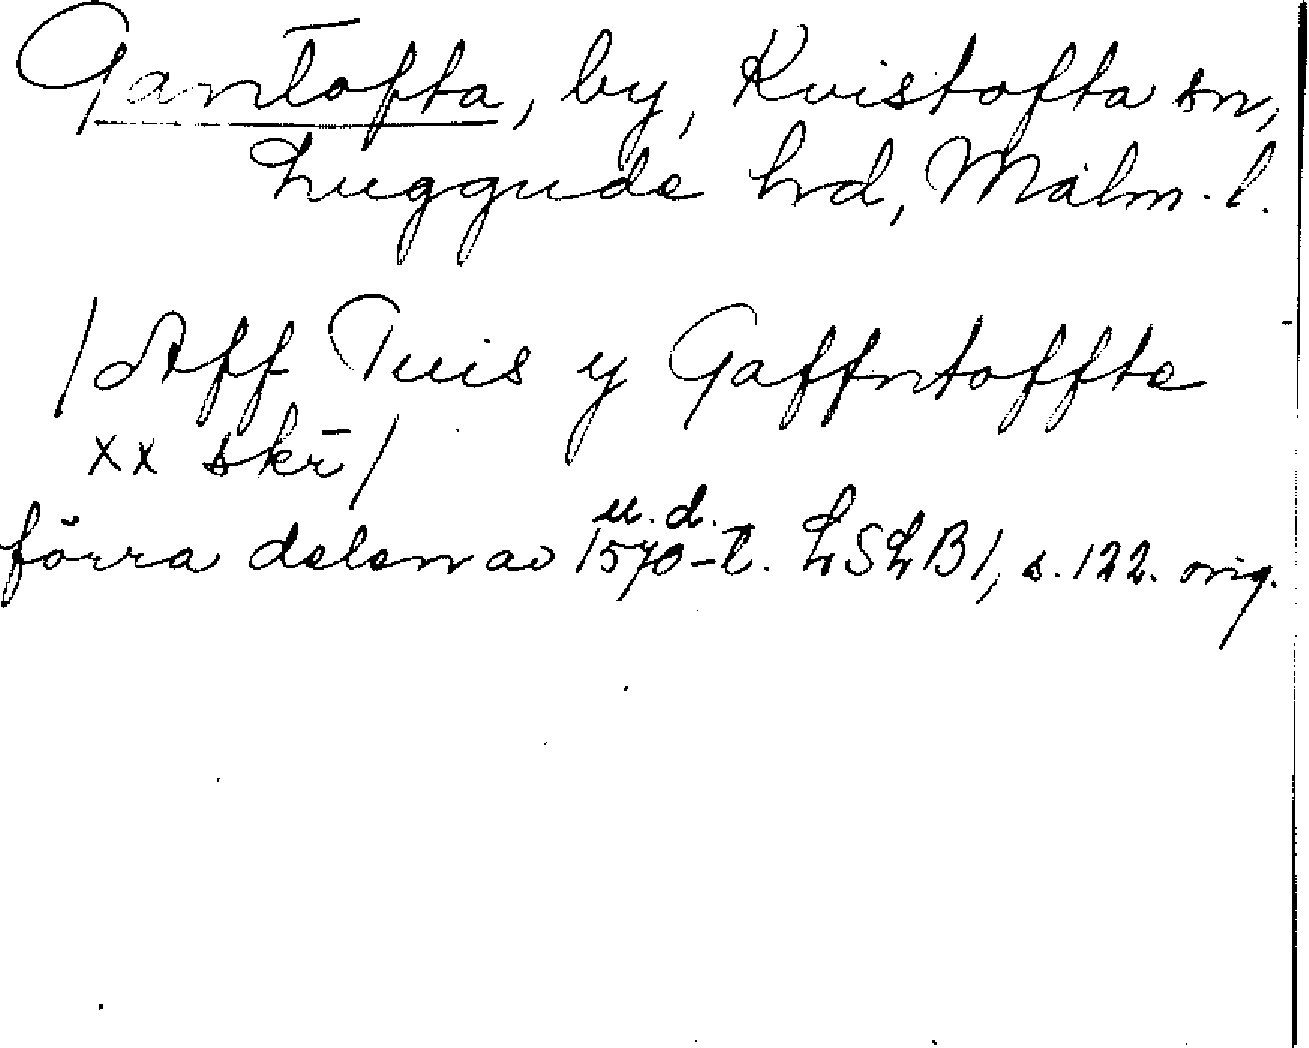 Gantofta, by, Kvistofta sn,
Luggude hrd, Malm. l.
/Aff Tuis y Gaffntoffte
xx skr̄/
u. d.
förra delen av 1570-t. LSLB1, s. 122. orig.